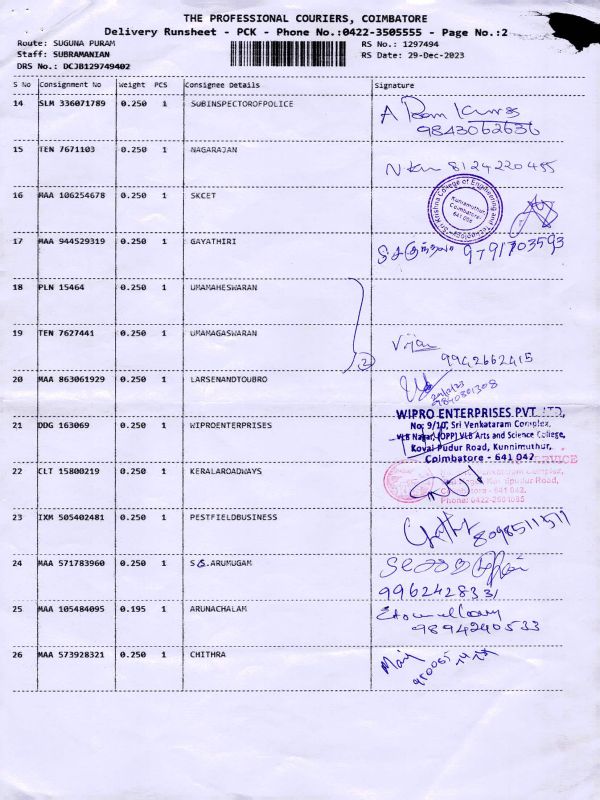 THE PROFESSIONAL COURIERS, COIMBATORE
Delivery Runsheet - PCK - Phone No.:0422-3505555 - Page No.:2
Route: SUGUNA PURAM
Staff: SUBRAMANIAN
DRS No.: DCJB129749402
RS No.: 1297494
RS Date: 29-Dec-2023
S No Consignment No Weight PCS Consignee Details Signature
14 SLM 336071789 0.250 1 SUBINSPECTOROFPOLICE
9843062636
15 TEN 7671103 0.250 1 NAGARAJAN
8124220455
16 MAA 106254678 0.250 1 SKCET
Sri Krishna College of Engineering and Technology
Kuniamuthur,
Coimbatore-
641 008
17 MAA 944529319 0.250 1 GAYATHIRI
9791703593
18 PLN 15464 0.250 1 UMAMAHESWARAN
19 TEN 7627441 0.250 1 UMAMAGASWARAN
2
9942662415
20 MAA 863061929 0.250 1 LARSENANDTOUBRO
21 DDG 163069 0.250 1 WIPROENTERPRISES
WIPRO ENTERPRISES PVT. LTD,
No: 9/10, Sri Venkataram Complex,
VLB Nagar, (OPP) VLB Arts and Science College,
Kovai Pudur Road, Kunnimuthur,
Coimbatore - 641 042
22 CLT 15800219 0.250 1 KERALAROADWAYS
SERVICE
Complex,
Road,
641 042.
Phone: 0422-2601085
23 IXM 505402481 0.250 1 PESTFIELDBUSINESS
8098511511
24 MAA 571783960 0.250 1 S S.ARUMUGAM
9962428331
25 MAA 105484095 0.195 1 ARUNACHALAM
9894240533
26 MAA 573928321 0.250 1 CHITHRA